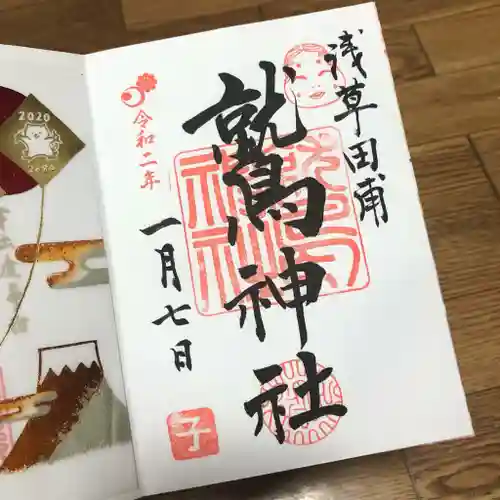 浅草田甫
鷲神社
令和二年
一月七日
子
2020